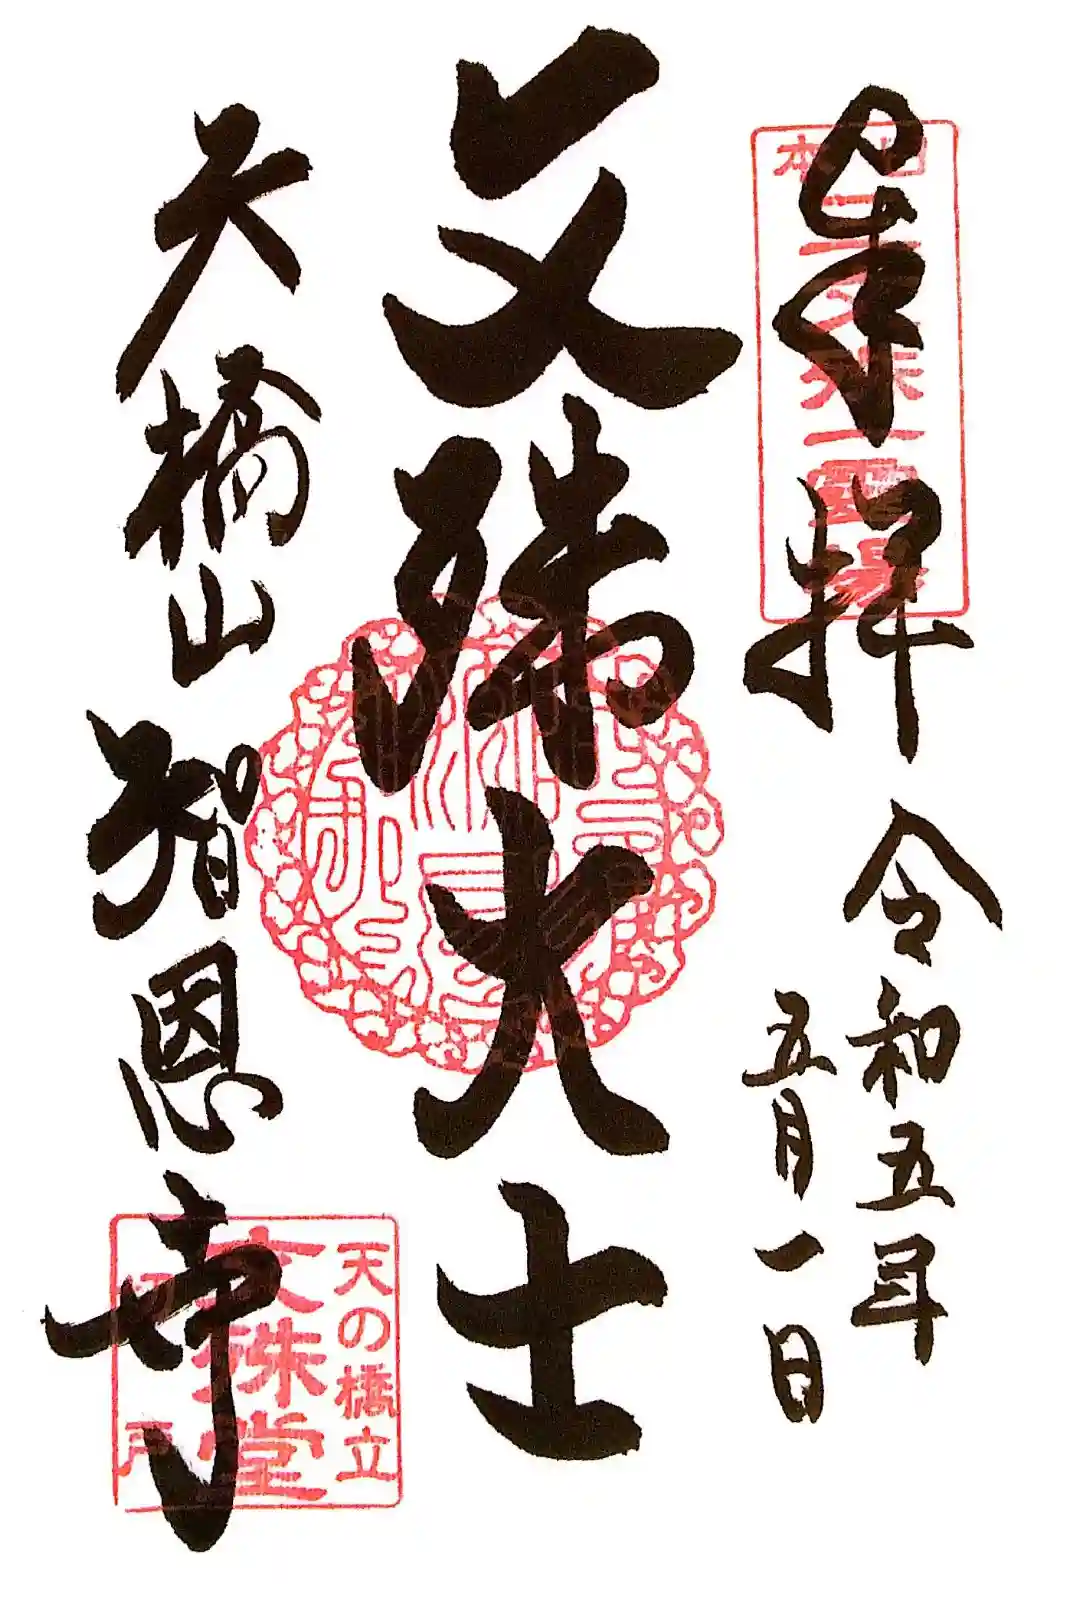 奉拝
令和五年
五月一日
文殊大士
天橋山智恩寺
天の橋立
文殊堂